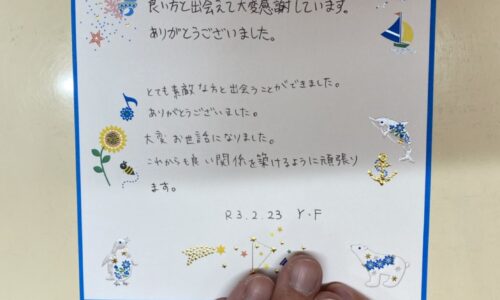 良い方と出会えて大変感謝しています。
ありがとうございました。
とても素敵な方と出会うことができました。
ありがとうございました。
大変お世話になりました。
これからも良い関係を築けるように頑張り
ます。
R3.2.23 Y.F